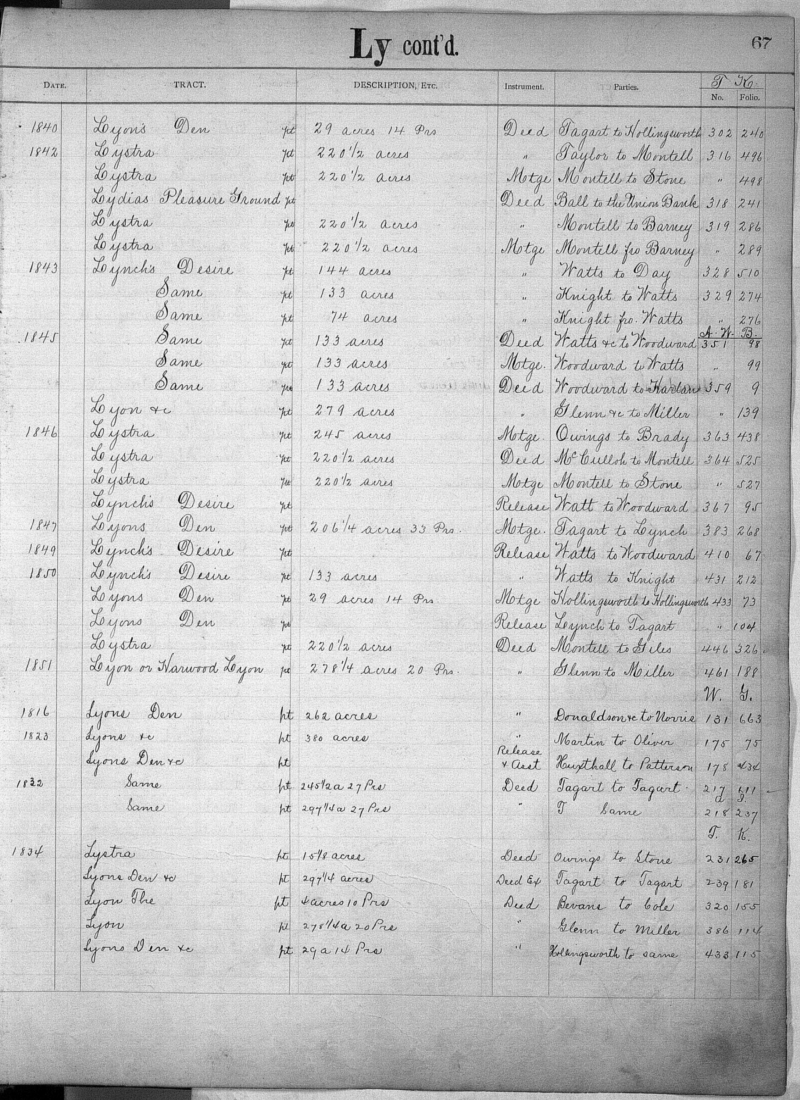 Ly cont'd.
67
DATE. TRACT. DESCRIPTION, ETC. Instrument. Parties. T. K. No. Folio.
1840 Lyons Den pt 29 acres 14 Prs Deed Tagart to Hollingsworth 302 240
1842 Lystra pt 220 1/2 acres " Taylor to Montell 316 496
Lystra pt 220 1/2 acres Motge Montell to Stone " 498
Lydias Pleasure Ground pt Deed Ball to the Union Bank 318 241
Lystra pt 220 1/2 acres " Montell to Barney 319 286
Lystra pt 220 1/2 acres Motge Montell fro Barney " 289
1843 Lynch's Desire pt 144 acres " Watts to Day 328 510
Same pt 133 acres " Knight to Watts 329 274
Same pt 74 acres " Knight fro. Watts " 276
A. W. B.
1845 Same pt 133 acres Deed Watts &c to Woodward 351 98
Same pt 133 acres Motge. Woodward to Watts " 99
Same pt 133 acres Deed Woodward to 359 9
Lyon &c pt 279 acres " Glenn &c to Miller " 139
1846 Lystra pt 245 acres Motge. Owings to Brady 363 438
Lystra pt 220 1/2 acres Deed McCulloh to Montell 364 525
Lystra pt 220 1/2 acres Motge Montell to Stone " 527
Lynch's Desire pt Release Watt to Woodward 367 95
1847 Lyons Den pt 206 1/4 acres 33 Prs. Motge. Tagart to Lynch 383 268
1849 Lynch's Desire pt Release Watts to Woodward 410 67
1850 Lynch's Desire pt 133 acres " Watts to Knight 431 212
Lyons Den pt 29 acres 14 Prs Motge Hollingsworth to Hollingsworth 433 73
Lyons Den pt Release Lynch to Tagart " 104
Lystra pt 220 1/2 acres Deed Montell to Giles 446 326
1851 Lyon or Harwood Lyon pt 278 1/4 acres 20 Prs. " Glenn to Miller 461 188
W. G.
1816 Lyons Den pt 262 acres " Donaldson &c to Norris 131 663
1823 Lyons &c pt 380 acres " Martin to Oliver 175 75
Lyons Den &c pt Release & Asst Huxthall to Patterson 178 434
1832 Same pt 245 1/2 a 27 Prs Deed Tagart to Tagart 217 111
Same pt 297 1/4 a 27 Prs " T Same 218 237
T. K.
1834 Lystra pt 15 1/8 acres Deed Owings to Stone 231 265
Lyons Den &c pt 297 1/4 acres Deed Ex Tagart to Tagart 239 181
Lyon The pt 4 acres 10 Prs Deed Bevans to Cole 320 155
Lyon pt 278 1/4 a 20 Prs " Glenn to Miller 386 114
Lyons Den &c pt 29 a 14 Prs " Hollingsworth to same 433 115